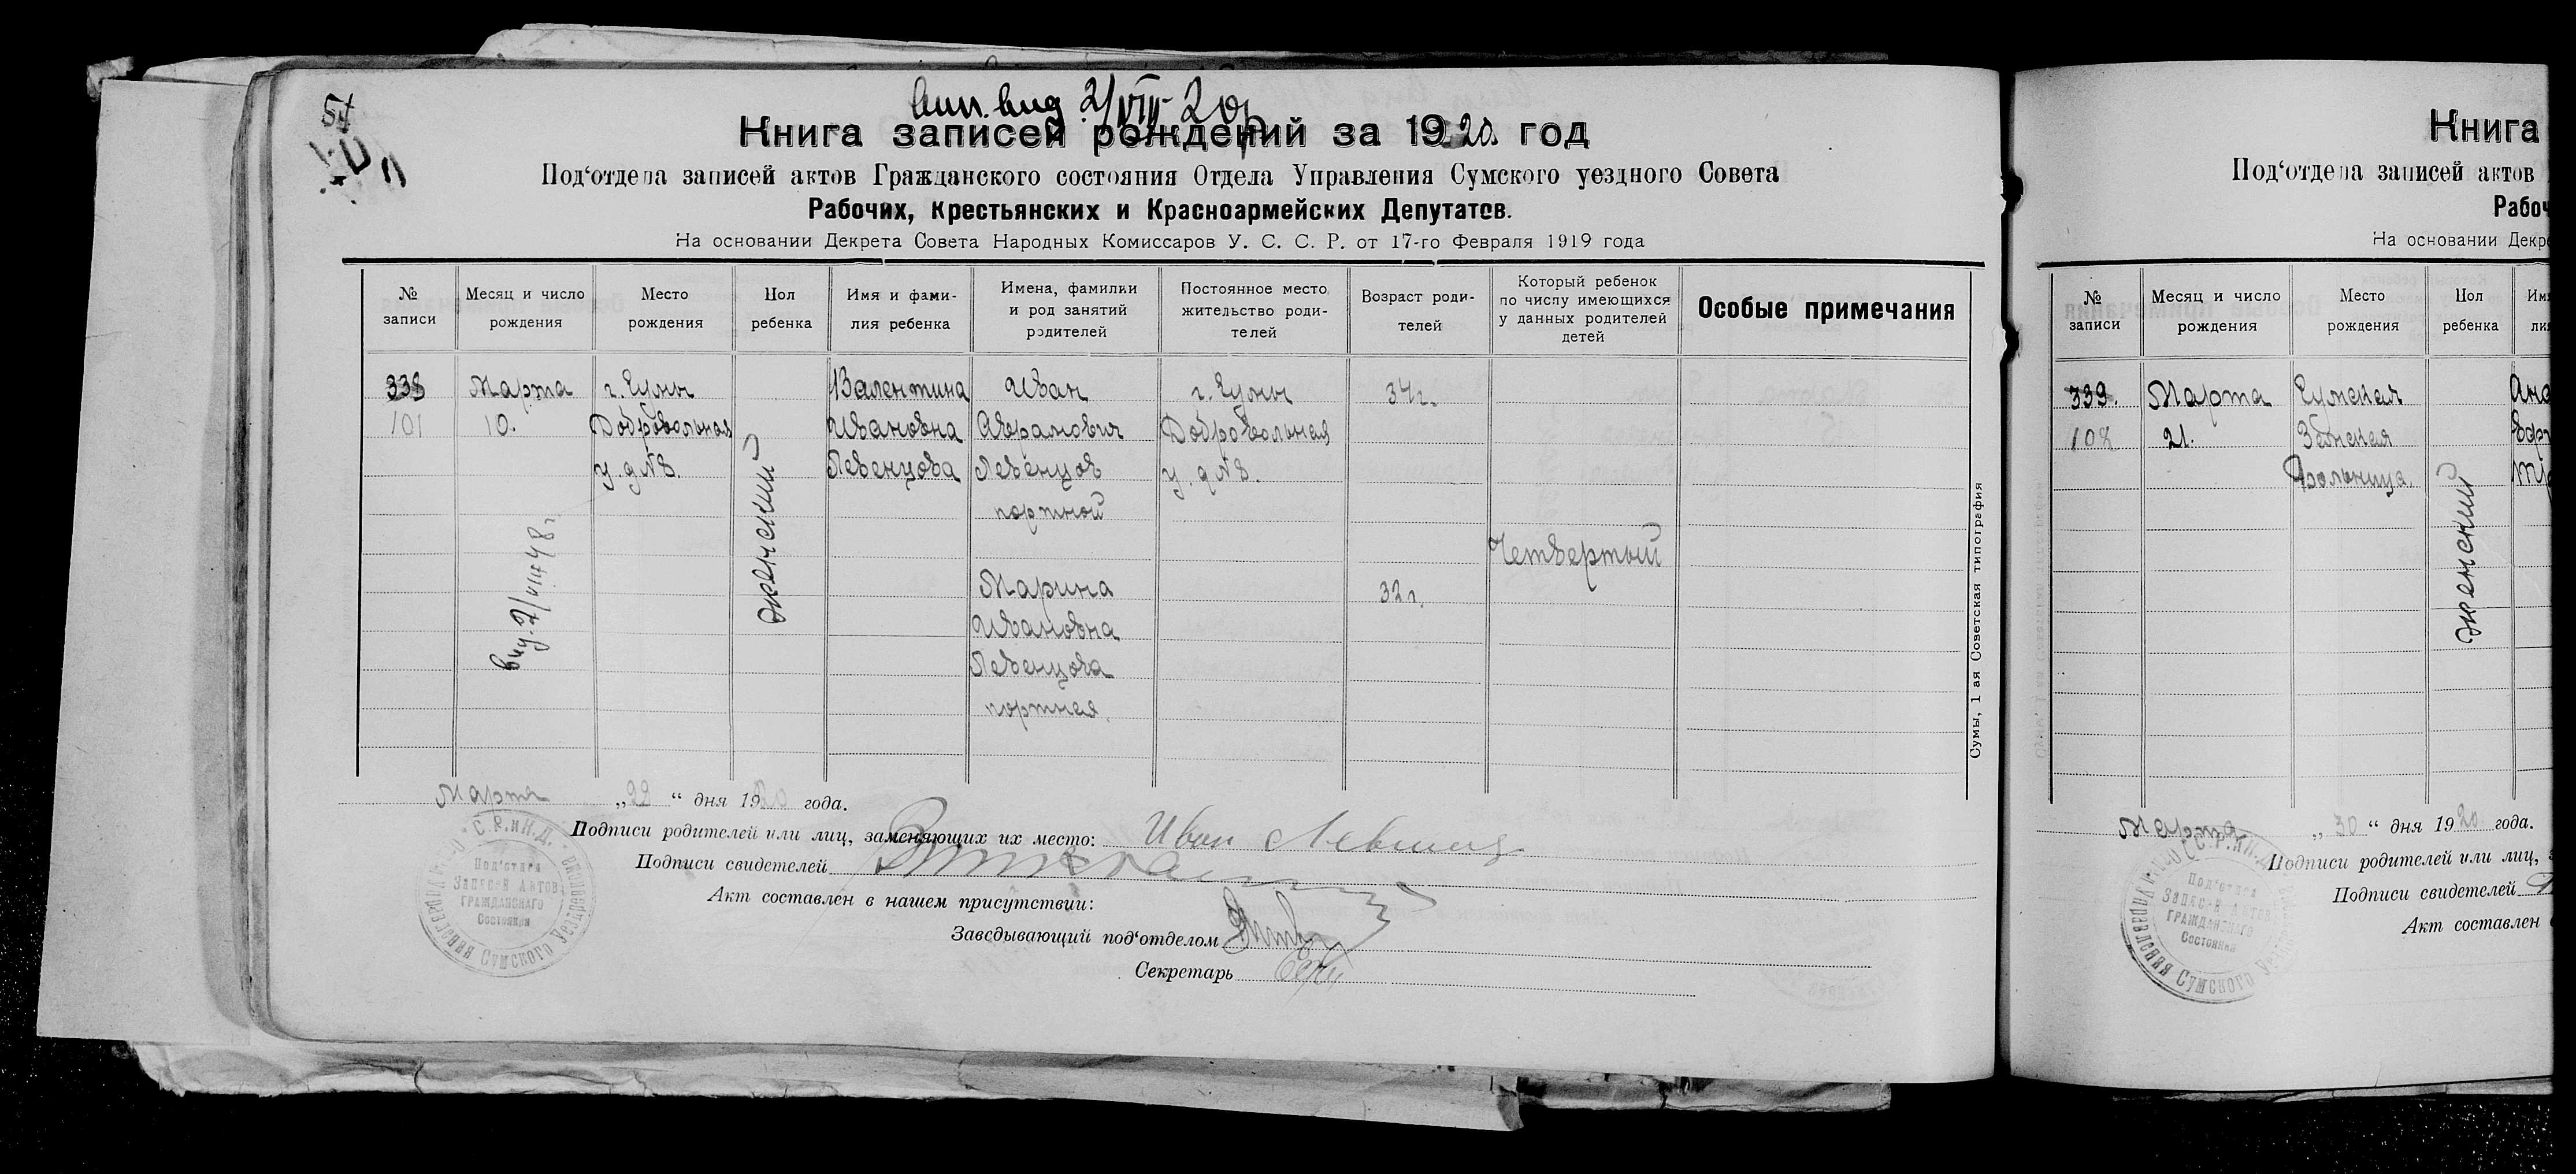 Книга записей рождений за 1920 год
Под‘отдела записей актов Гражданского состояния Отдела Управления Сумского уездного Совета
Рабочих, Крестьянских и Красноармейских Депутатов.
На основании Декрета Совета Народных Комиссаров У. С. С. Р. от 17-го Февраля 1919 года
№ записи
Месяц и число рождения
Место рождения
Пол ребенка
Имя и фами-
лия ребенка
Имена, фамилии
и род занятий
родителей
Постоянное место
жительство роди-
телей
Возраст роди-
телей
Который ребенок
по числу имеющихся
у данных родителей
детей
Особые примечания
338
101
Марта
10.
г. Сумы
Добровольная
у. д №8.
женский
Валентина
Ивановна
Левенцова
Иван
Аврамович
Левенцов
портной
Марина
Ивановна
Левенцова
портная
г. Сумы
Добровольная
у. д №8.
34 г.
32 г.
Четвертый
Сумы, 1 ая Советская типография
Марта „22“ дня 1920 года.
Подписи родителей или лиц, заменяющих их место: Иван
Подписи свидетелей
Акт составлен в нашем присутствии:
Заведывающий под‘отделом
Секретарь
С.Р.и К.Д.
Управления Сумского Уездного
Под‘отдел
Записей Актов
Гражданскаго
Состояния
Книга
Под‘отдела записей актов
Рабоч
На основании Декре
№ записи
Месяц и число рождения
Место рождения
Пол ребенка
Имя
лия
339.
108
Марта
21.
Сумская
Земская
больница.
женский
Марта „30“ дня 1920 года.
Подписи родителей или лиц,
Подписи свидетелей
Акт составлен
Под‘отдел
Записей Актов
Гражданскаго
Состояния